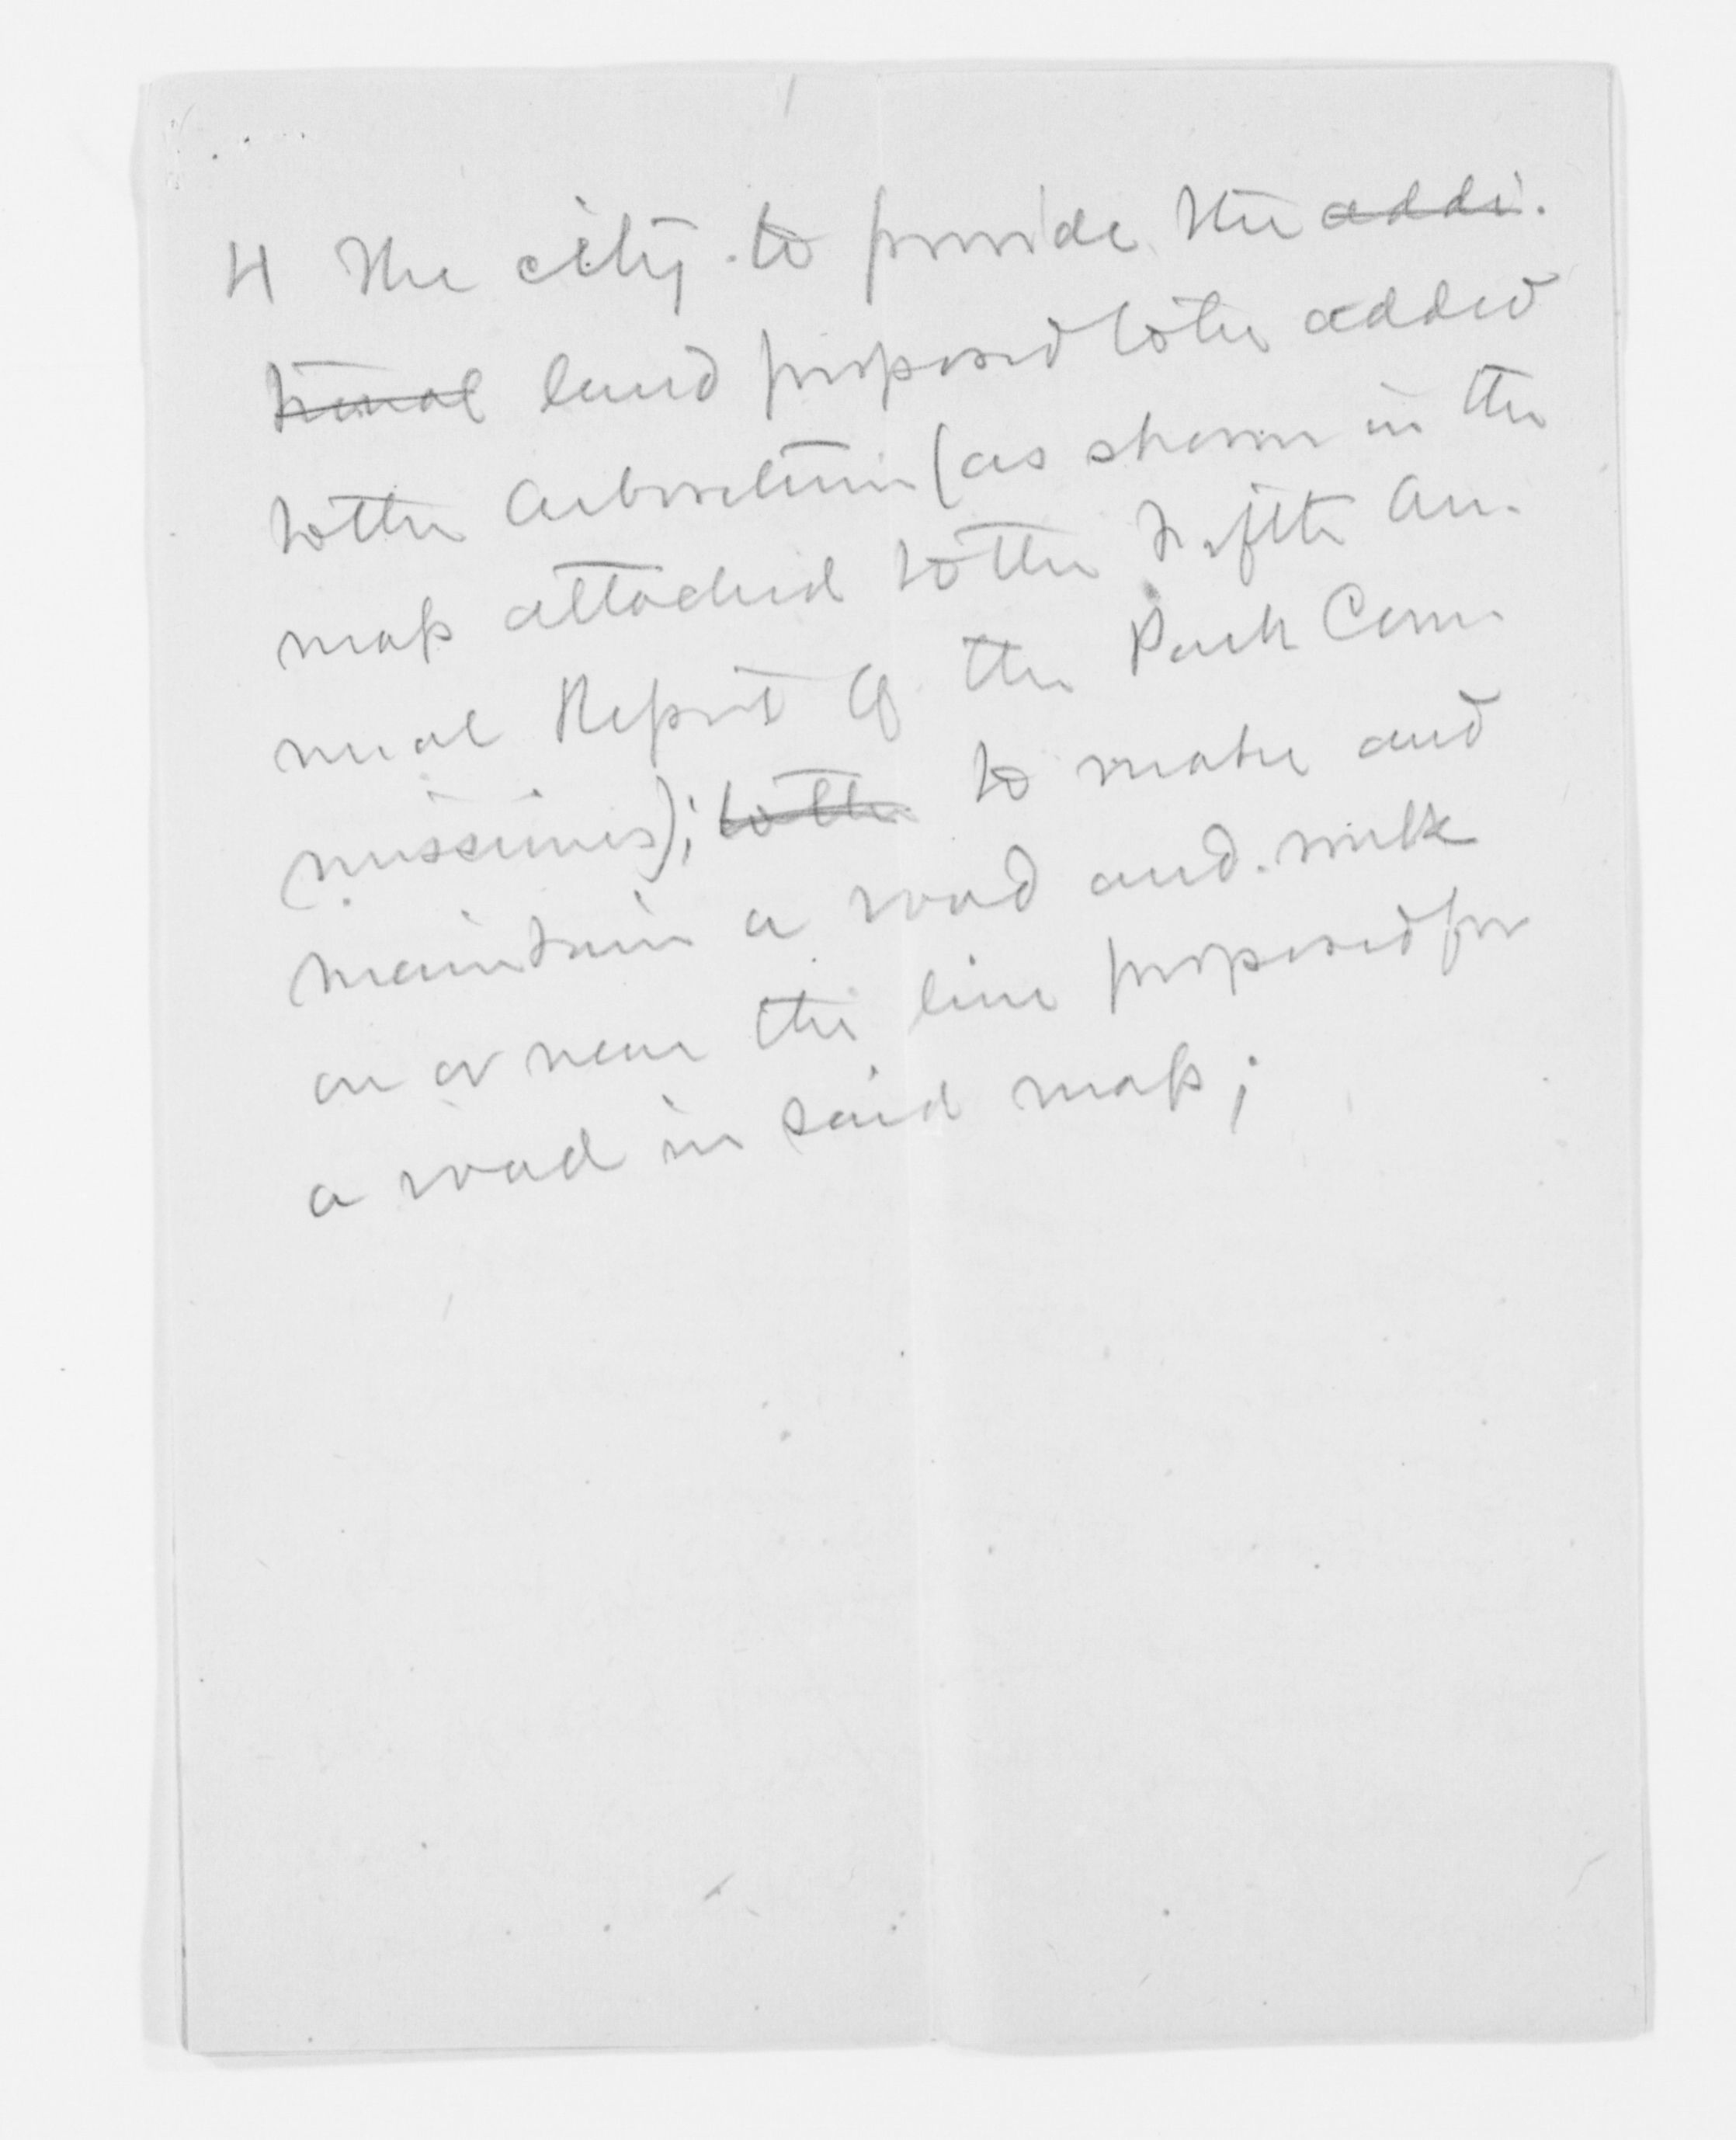 4 The city to provide the addi-
tional land proposed to be added
to the Arboretum (as shown in the
map attached to the Fifth An-
nual Report of the Park Com-
missioners); to the to make and
maintain a road and walk
on or near the line proposed for
a road in said map;